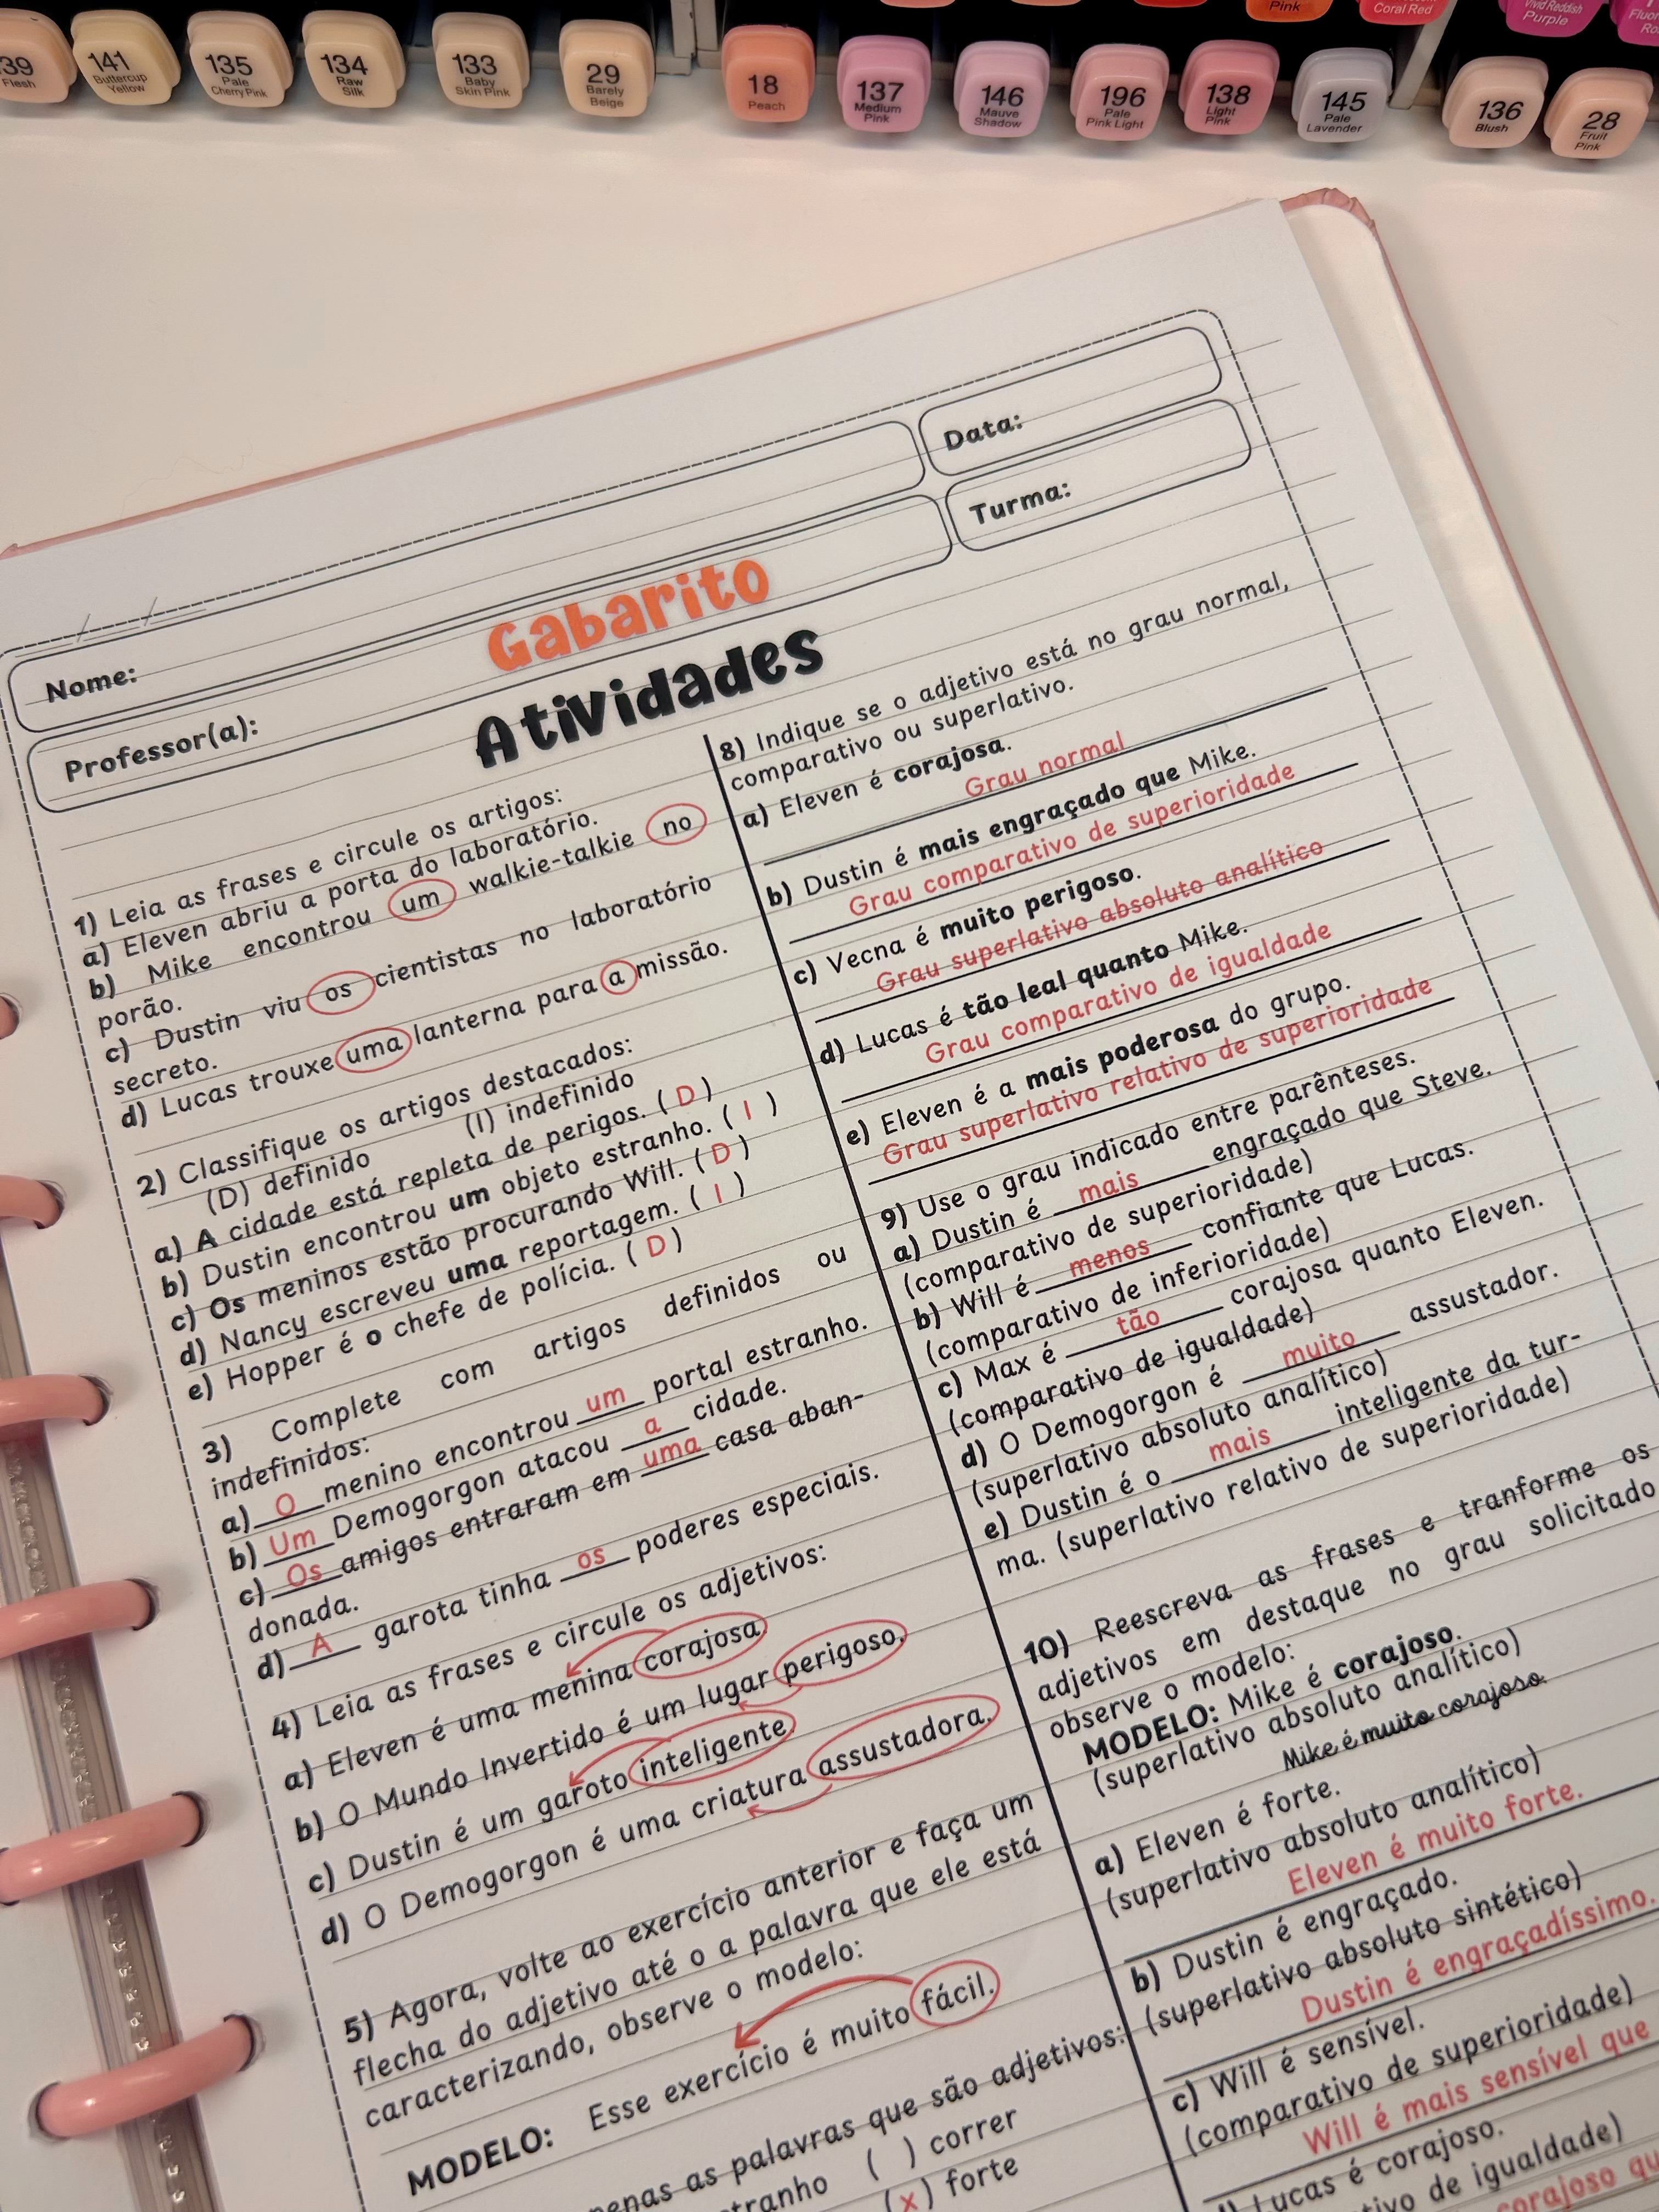 39
Flesh
141
Buttercup
Yellow
135
Pale
Cherry Pink
134
Raw
Silk
133
Baby
Skin Pink
29
Barely
Beige
18
Peach
137
Medium
Pink
146
Mauve
Shadow
196
Pale
Pink Light
138
Light
Pink
145
Pale
Lavender
136
Blush
28
Fruit
Pink
Pink
Coral Red
Vivid Reddish
Purple
Nome:
Data:
Professor(a):
Turma:
Gabarito
Atividades
1) Leia as frases e circule os artigos:
a) Eleven abriu a porta do laboratório.
b) Mike encontrou um walkie-talkie no
porão.
c) Dustin viu os cientistas no laboratório
secreto.
d) Lucas trouxe uma lanterna para a missão.
2) Classifique os artigos destacados:
(D) definido (I) indefinido
a) A cidade está repleta de perigos. ( D )
b) Dustin encontrou um objeto estranho. ( I )
c) Os meninos estão procurando Will. ( D )
d) Nancy escreveu uma reportagem. ( I )
e) Hopper é o chefe de polícia. ( D )
3) Complete com artigos definidos ou
indefinidos:
a) O menino encontrou um portal estranho.
b) Um Demogorgon atacou a cidade.
c) Os amigos entraram em uma casa aban-
donada.
d) A garota tinha os poderes especiais.
4) Leia as frases e circule os adjetivos:
a) Eleven é uma menina corajosa.
b) O Mundo Invertido é um lugar perigoso.
c) Dustin é um garoto inteligente.
d) O Demogorgon é uma criatura assustadora.
5) Agora, volte ao exercício anterior e faça um
flecha do adjetivo até o a palavra que ele está
caracterizando, observe o modelo:
MODELO: Esse exercício é muito fácil.
as palavras que são adjetivos:
( ) correr
(x) forte
8) Indique se o adjetivo está no grau normal,
comparativo ou superlativo.
a) Eleven é corajosa.
Grau normal
b) Dustin é mais engraçado que Mike.
Grau comparativo de superioridade
c) Vecna é muito perigoso.
Grau superlativo absoluto analítico
d) Lucas é tão leal quanto Mike.
Grau comparativo de igualdade
e) Eleven é a mais poderosa do grupo.
Grau superlativo relativo de superioridade
9) Use o grau indicado entre parênteses.
a) Dustin é mais engraçado que Steve.
(comparativo de superioridade)
b) Will é menos confiante que Lucas.
(comparativo de inferioridade)
c) Max é tão corajosa quanto Eleven.
(comparativo de igualdade)
d) O Demogorgon é muito assustador.
(superlativo absoluto analítico)
e) Dustin é o mais inteligente da tur-
ma. (superlativo relativo de superioridade)
10) Reescreva as frases e tranforme os
adjetivos em destaque no grau solicitado
observe o modelo:
MODELO: Mike é corajoso.
(superlativo absoluto analítico)
Mike é muito corajoso.
a) Eleven é forte.
(superlativo absoluto analítico)
Eleven é muito forte.
b) Dustin é engraçado.
(superlativo absoluto sintético)
Dustin é engraçadíssimo.
c) Will é sensível.
(comparativo de superioridade)
Will é mais sensível que
Lucas é corajoso.
de igualdade)
corajoso